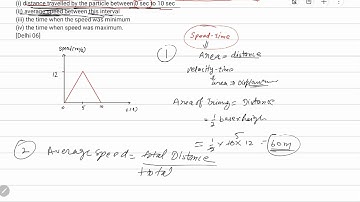 (i) distance travelled by the particle between 0 sec to 10 sec
(ii) average speed between this interval
(iii) the time when the speed was minimum
(iv) the time when speed was maximum.
[Delhi 06]
Speed-time
1
Area = distance
velocity-time
area → Displacement
12
0
5
10
Area of triangle = Distance
= 1/2 base x height
= 1/2 x 10 x 12 = 60m
5
2 Average speed = total Distance
total